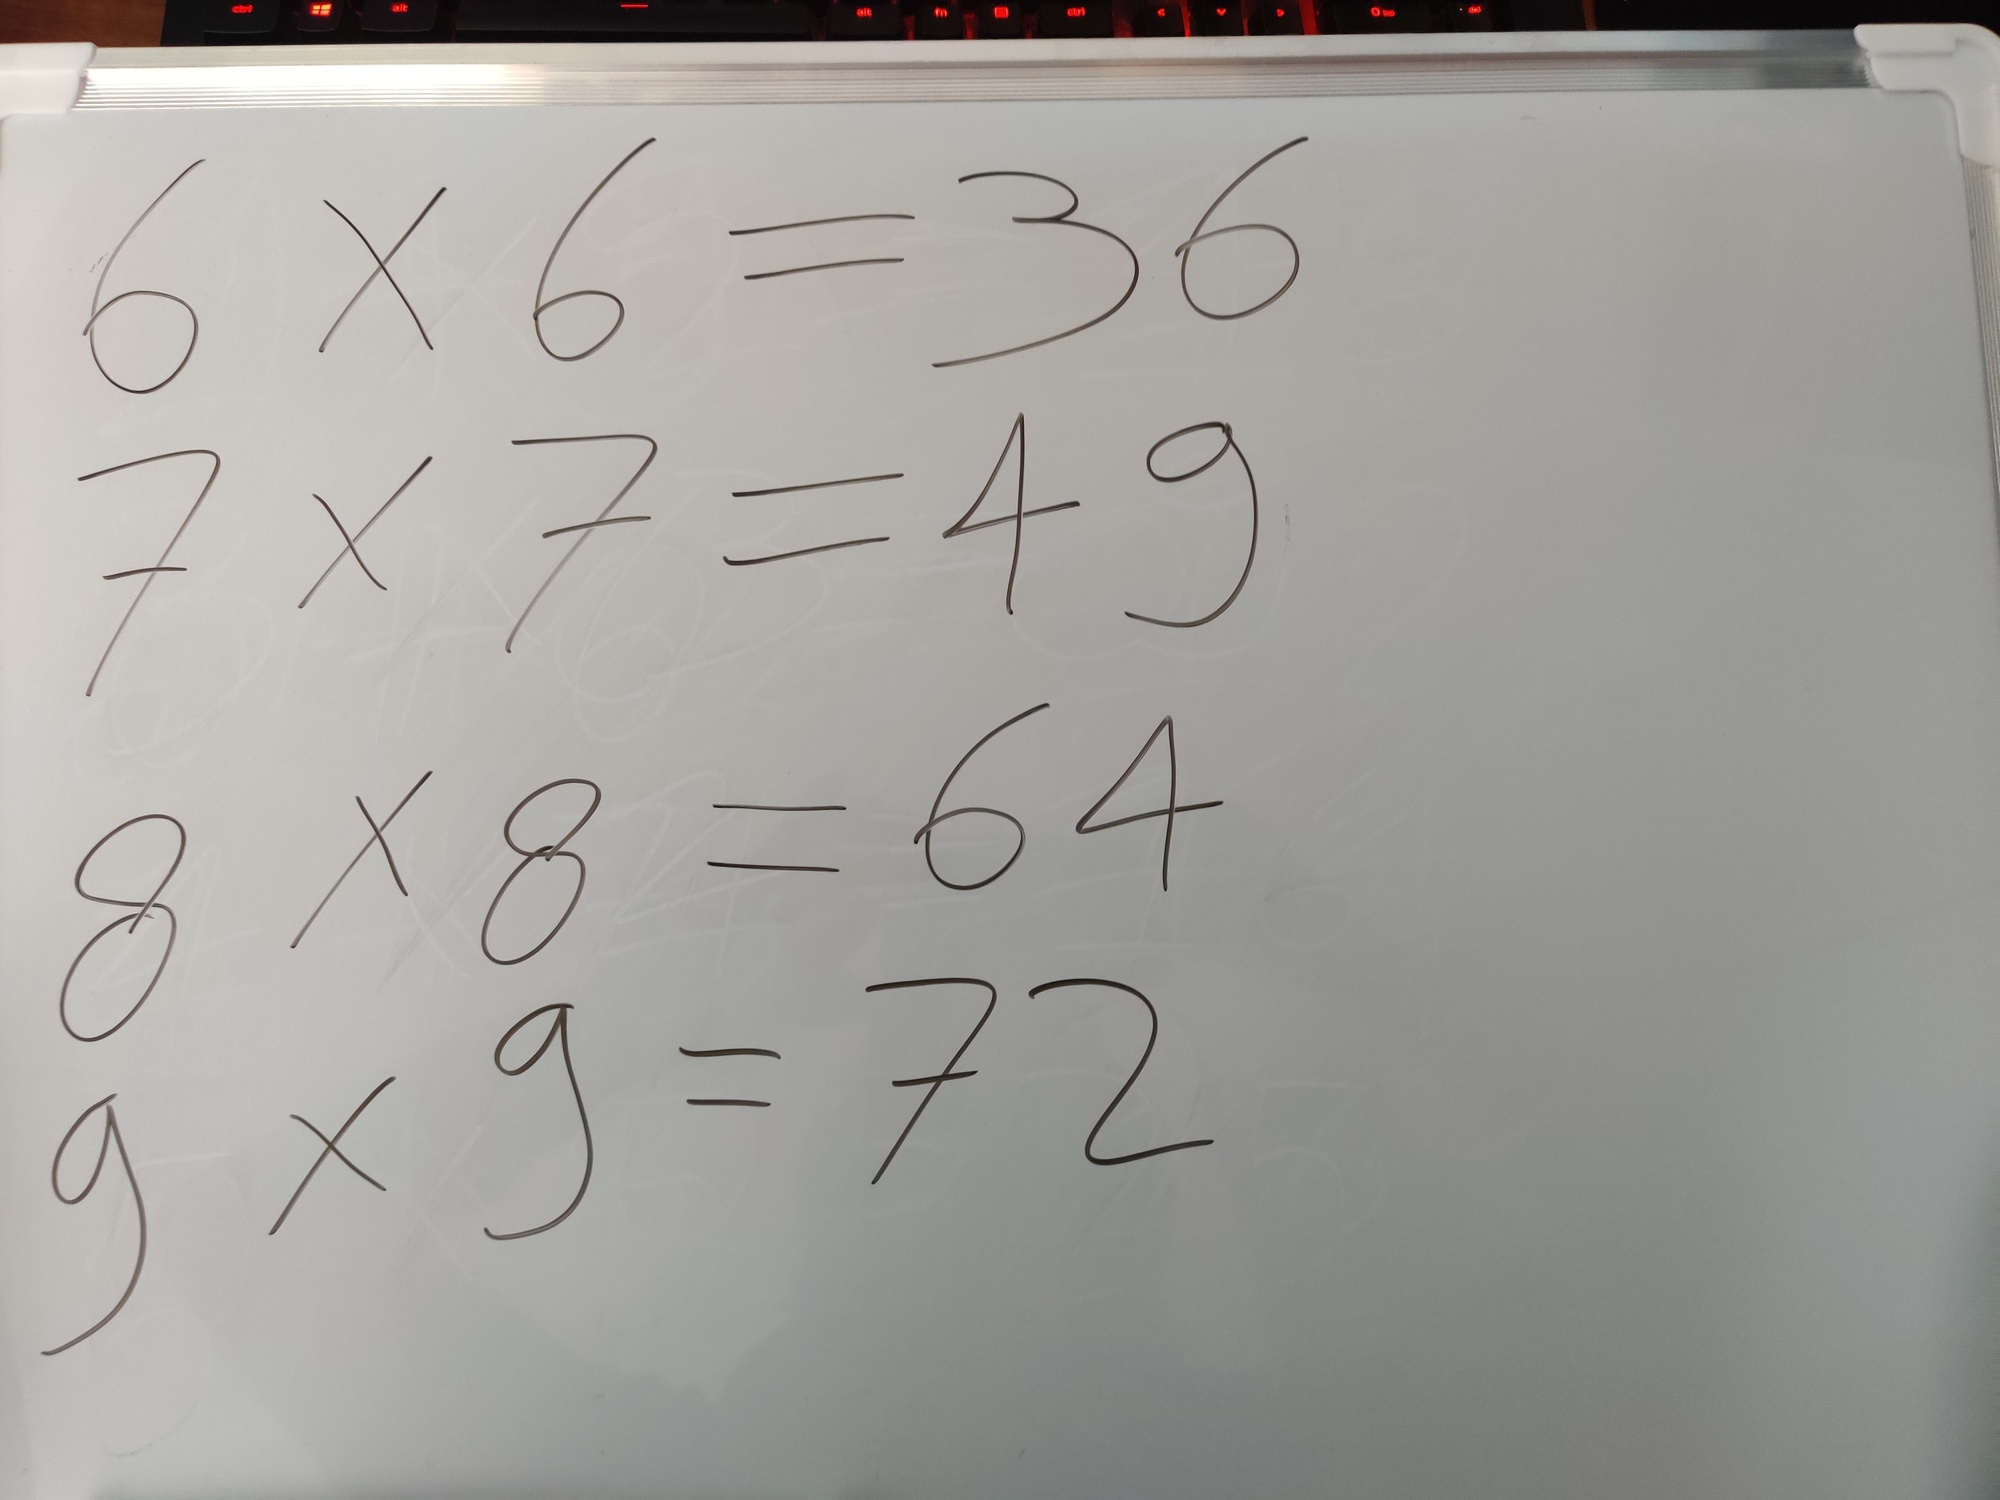 ctrl alt alt fn ctrl < v > del
6 × 6 = 36
7 × 7 = 49
8 × 8 = 64
9 × 9 = 72